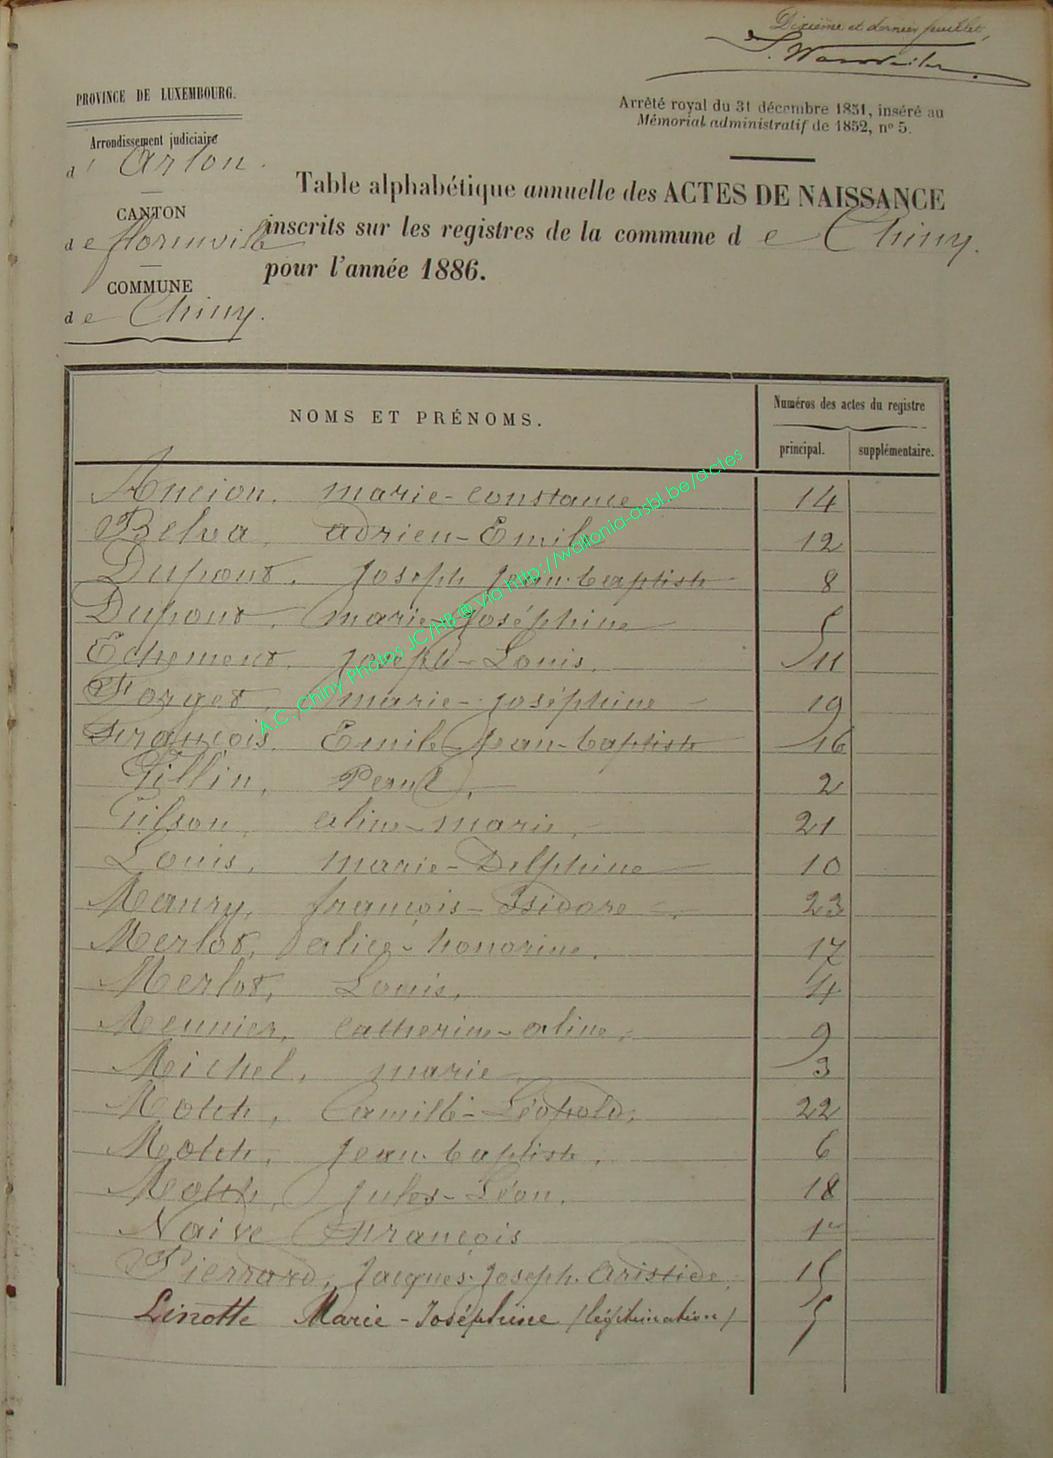 Dixième et dernier feuillet,
PROVINCE DE LUXEMBOURG.
Arrêté royal du 31 décembre 1851, inséré au
Mémorial administratif de 1852, nº 5.
Arrondissement judiciaire
d' Arlon.
CANTON
de florenville
COMMUNE
de Chiny.
Table alphabétique annuelle des ACTES DE NAISSANCE
inscrits sur les registres de la commune de Chiny.
pour l'année 1886.
NOMS ET PRÉNOMS.
Numéros des actes du registre
principal. supplémentaire.
Ancion. marie-constance 14
Belva, adrien-Emile 12
Dupont. Joseph Jean-baptiste 8
Dupont, marie-Joséphine 5
Echement. Joseph-Louis. 11
Forget, marie-Joséphine 19
François. Emile Jean-baptiste 16
Gillin, 2
Gilson, aline-marie, 21
Louis, marie-Delphine 10
Maury, françois-Isidore 23
Merlot, alice-honorine. 17
Merlot, Louis, 4
Meunier, catherine-aline, 9
Michel, marie 3
Motch, Camille-Léopold, 22
Motch, Jean-baptiste, 6
Motch, Jules-Léon. 18
Naive François 1er
Pierrard, Jacques-Joseph-Aristide, 15
Linotte Marie-Joséphine /légitimation/ 5
A.C. Chiny Photos JC/HB @ via http://wallonia-asbl.be/actes